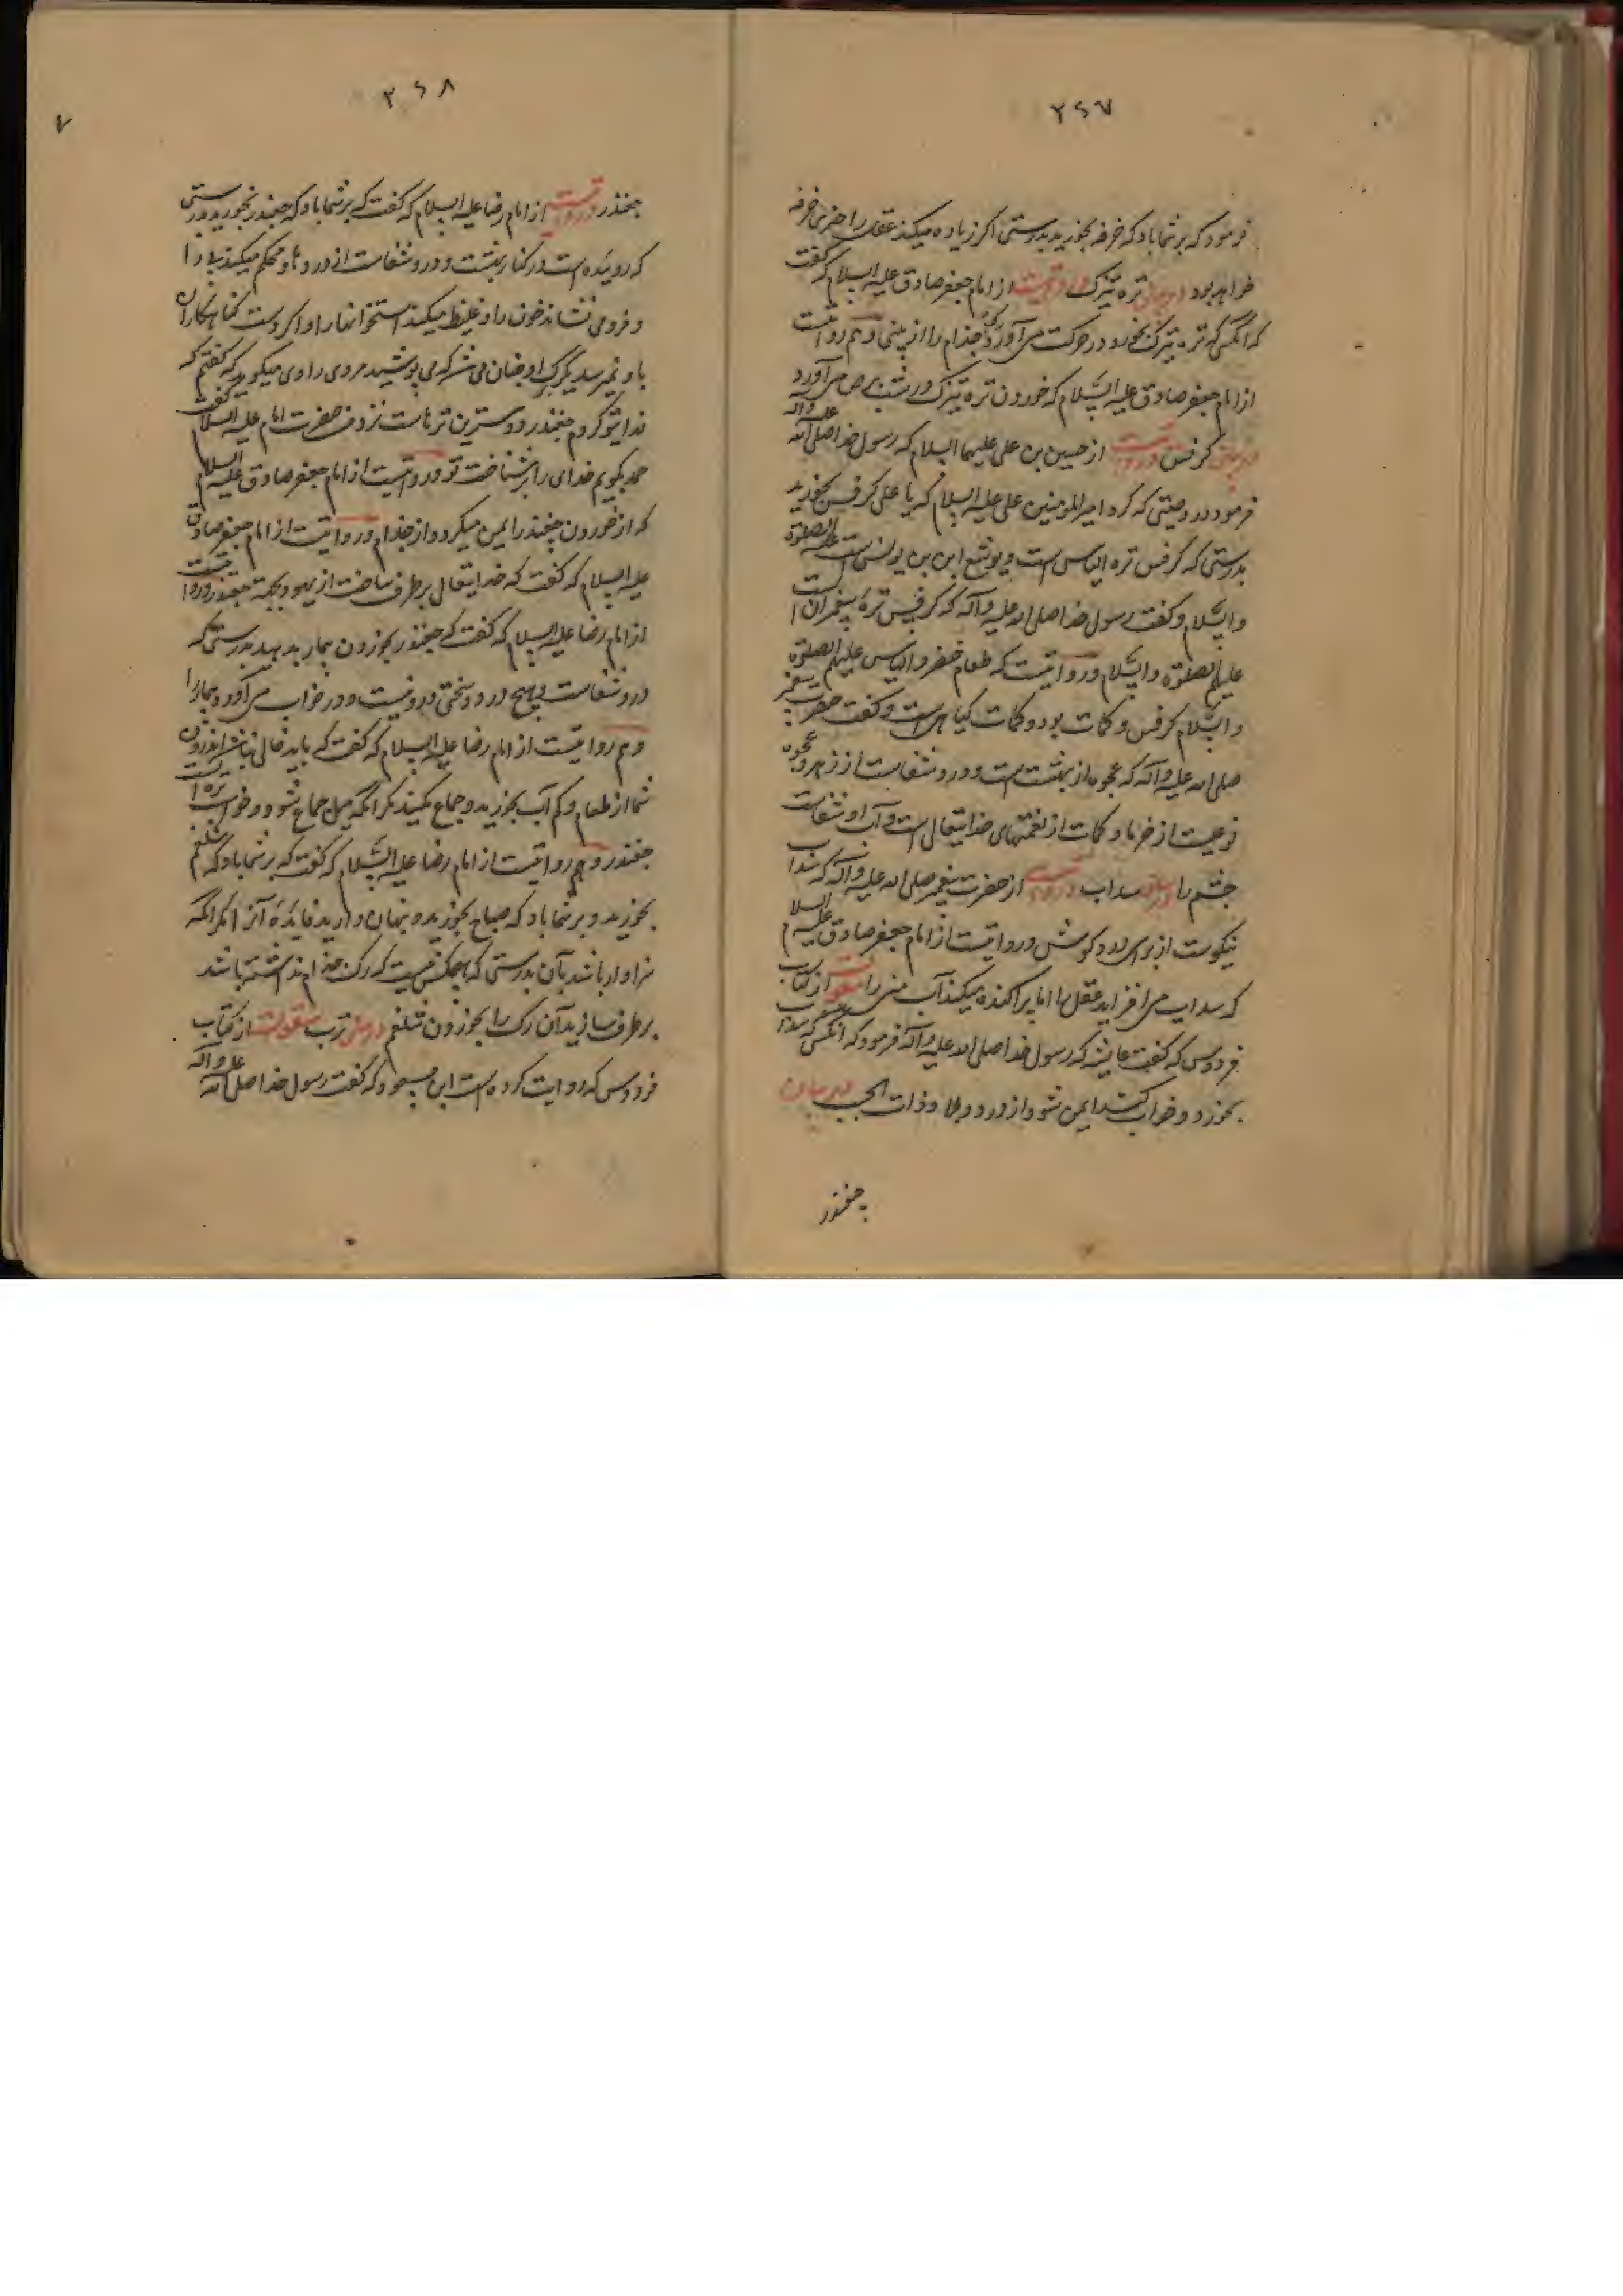 ۲۶۷
فرمود که بر شما باد که خرفه بخورید بدرستی اگر زیاده میکند عقل را جز خرفه
خواهد بود در بیان تره تیزک روایتست از امام جعفر صادق علیه السلام که گفت
که آنکس که تره تیزک بخورد در حرکت می آورد رک جذام را از بینی و هم روایتست
از امام جعفر صادق علیه السلام که خوردن تره تیزک در شب برص می آورد
در بیان کرفس روایتست از حسین بن علی علیهما السلام که رسول خدا صلی الله علیه و آله
فرمود در وصیتی که کرد امیر المومنین علی علیه السلام که یا علی کرفس بخورید
بدرستی که کرفس تره الیاس است و یوشع ابن نون است علیه الصلوة
والسلام و گفت رسول خدا صلی الله علیه و آله که کرفس تره پیغمران است
علیهم الصلوة والسلام و روایتست که طعام خضر و الیاس علیهم الصلوة
والسلام کرفس و کمات بود و کمات گیاهی است و گفت حضرت پیغمبر
صلی الله علیه و آله که عجوه از بهشت است و درو شفاست از زهر و عجوه
نوعیست از خرما و کمات از نعمتهای خدایتعالی است و آب او شفاست
چشم را در بیان سداب روایتست از حضرت پیغمبر صلی الله علیه و آله که سداب
نیکوست از برای درد گوش و روایتست از امام جعفر صادق علیه السلام
که سداب می افزاید عقل را اما پراکنده میکند آب منی را منقولست از کتاب
فردوس که گفت عایشه که رسول خدا صلی الله علیه و آله فرمود که آنکس که سداب
بخورد و خواب کند ایمن شود از درد و بلا و ذات الجنب در بیان
چغندر
۲۶۸
۷
چغندر روایتست از امام رضا علیه السلام که گفت که بر شما باد که چغندر بخورید بدرستی
که روییده است در کنار بهشت و درو شفاست از دردها و محکم میکند
و فرو می نشاند خون را و غلیظ میکند استخوانها را و اگر دست گناهکاران
باو نمی رسید یک برگ او چنان می شد که می پوشید مردی را راوی میگوید که گفتم که
فدای تو گردم چغندر دوستترین ترهاست نزد من حضرت امام علیه السلام گفت
حمد بگویم خدای را بر شناخت تو و روایتست از امام جعفر صادق علیه السلام
که از خوردن چغندر ایمن میگردد از جذام و روایتست از امام جعفر صادق
علیه السلام که گفت که خدایتعالی بر طرف ساخت از یهود بجهة چغندر و روایتست
از امام رضا علیه السلام که گفت که چغندر بخوردن بیمار بدهید بدرستی که
درو شفاست و هیچ درد و سختی درو نیست و در خواب می آورد بیمار را
و هم روایتست از امام رضا علیه السلام که گفت که باید خالی نباشد اندرون
شما از طعام و کم آب بخورید و جماع مکنید مگر آنکه میل جماع شود و خوب تره است
چغندر و هم روایتست از امام رضا علیه السلام که گفت که بر شما باد که شلغم
بخورید و بر شما باد که صباح بخورید و پنهان دارید فایده آنرا مگر آنکه
سزاوار باشد بآن بدرستی که هیچکس نیست که رک جذام نداشته باشد
بر طرف سازید آن رک را بخوردن شلغم در بیان ترب منقولست از کتاب
فردوس که روایت کرده است ابن مسعود که گفت رسول خدا صلی الله علیه و آله